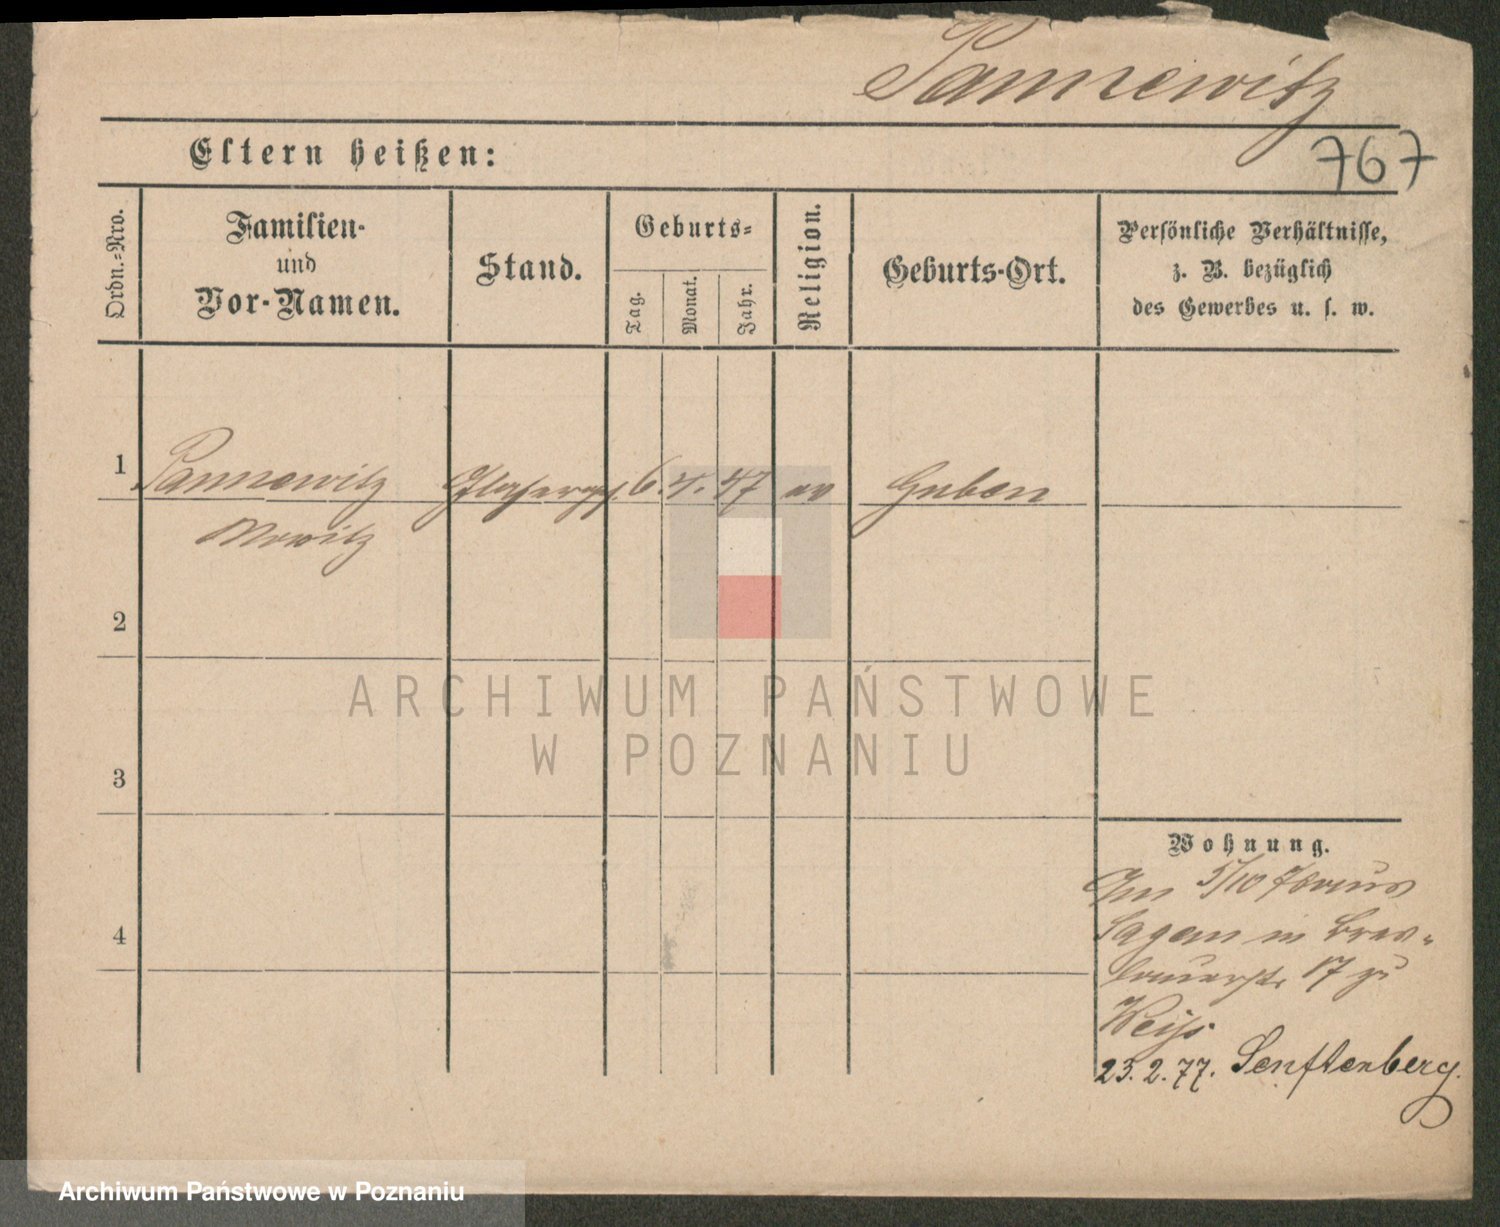 Pannewitz
767
Eltern heißen:
Ordn.-Nro.
Familien-
und
Vor-Namen.
Stand.
Geburts-
Tag.
Monat.
Jahr.
Religion.
Geburts-Ort.
Persönliche Verhältnisse,
z. B. bezüglich
des Gewerbes u. s. w.
1
Pannewitz
6. 4. 47
ev
Guben
Moritz
2
3
4
ARCHIWUM PAŃSTWOWE
W POZNANIU
Wohnung.
5/10
Sagan in
17 zu
Weiss
23.2.77. Senftenberg.
Archiwum Państwowe w Poznaniu